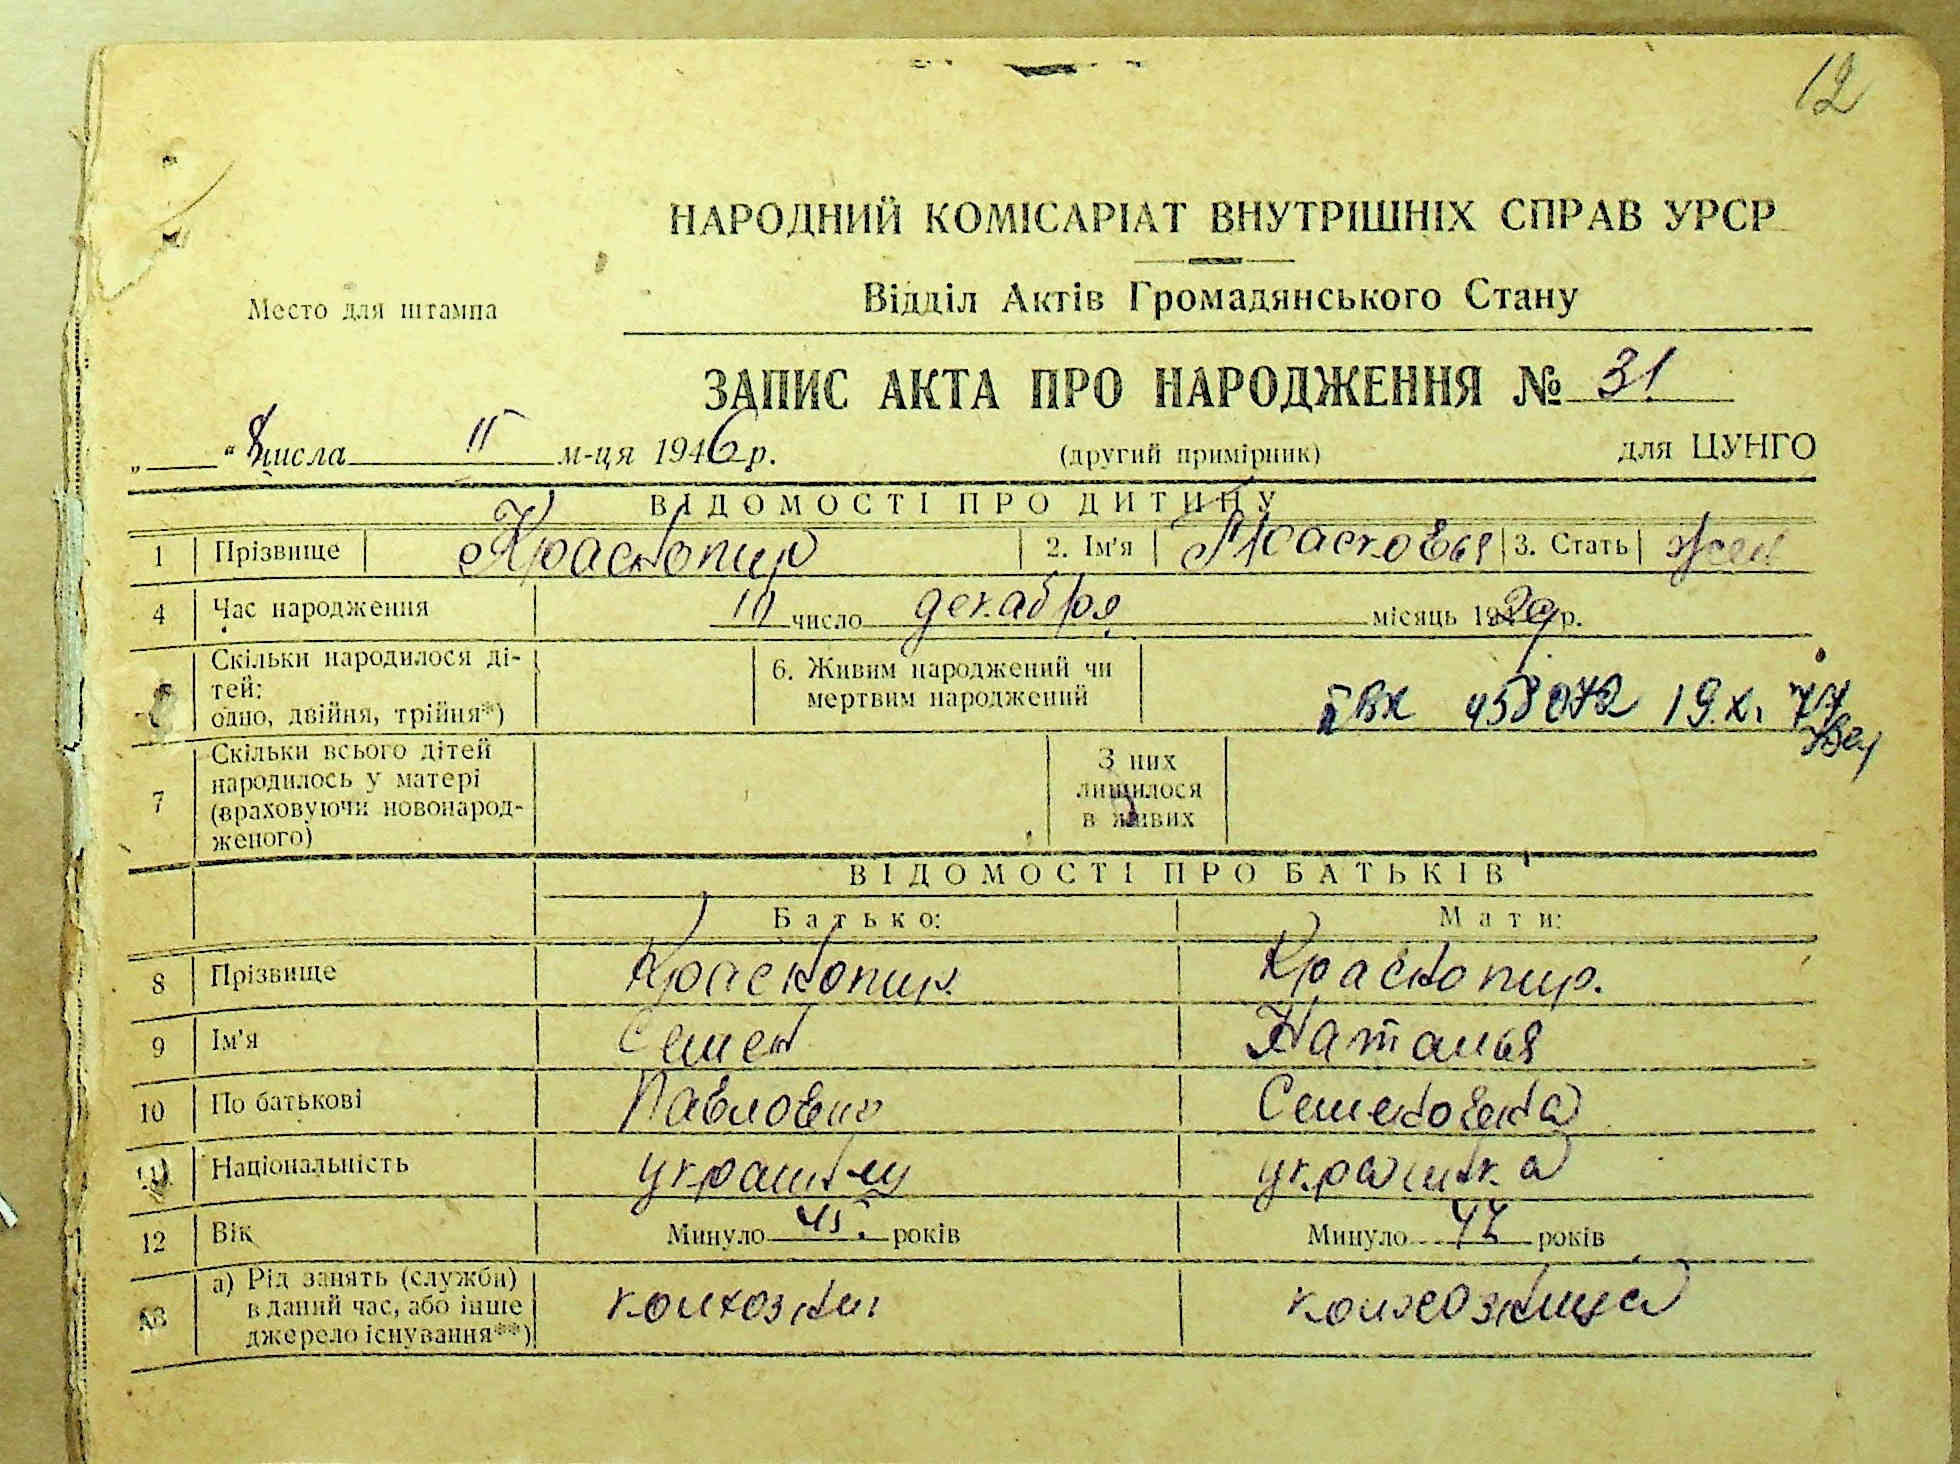 12
НАРОДНИЙ КОМІСАРІАТ ВНУТРІШНІХ СПРАВ УРСР
Место для штампа
Відділ Актів Громадянського Стану
ЗАПИС АКТА ПРО НАРОДЖЕННЯ № 31
„ “ 8 числа II м-ця 1946 р. (другий примірник) для ЦУНГО
ВІДОМОСТІ ПРО ДИТИНУ
1 Прізвище Краснопир 2. Ім'я Прасковья 3. Стать жен
4 Час народження 10 число декабря місяць 1929 р.
Скільки народилося ді-
тей:
одно, двійня, трійня*)
6. Живим народжений чи
мертвим народжений
458072 19.X. 77
7 Скільки всього дітей
народилось у матері
(враховуючи новонарод-
женого)
З них
лишилося
в живих
ВІДОМОСТІ ПРО БАТЬКІВ
Батько: Мати:
8 Прізвище Краснопир. Краснопир.
9 Ім'я Семен Наталья
10 По батькові Павлович Семеновна
11 Національність украинец украинка
12 Вік Минуло 45. років Минуло років
13 а) Рід занять (служби)
в даний час, або інше
джерело існування**)
колхозник колхозница